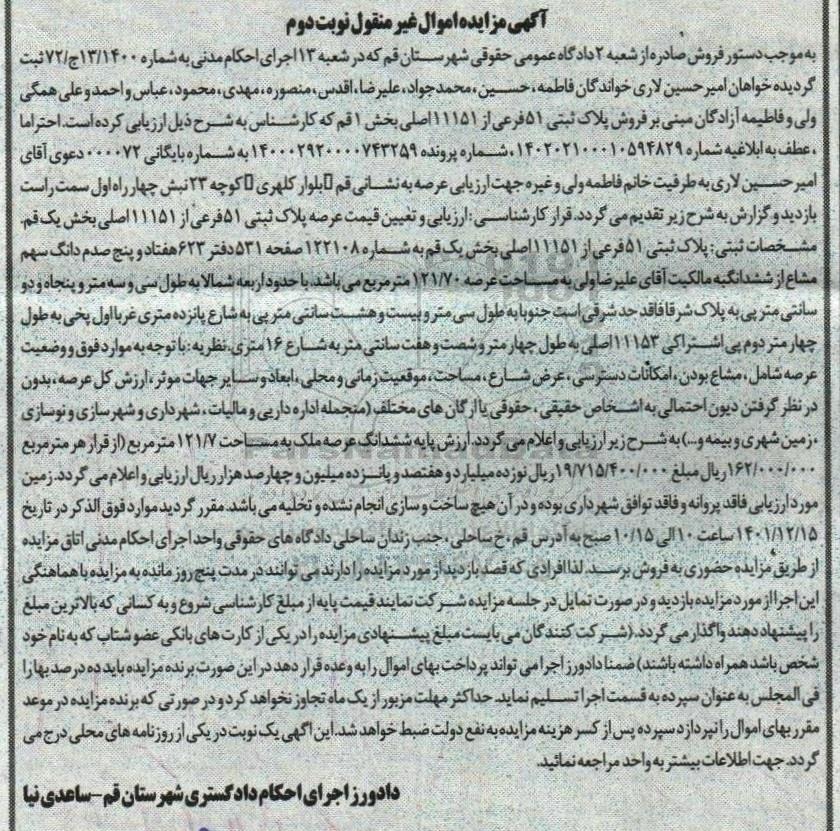 آگهی مزایده اموال غیر منقول نوبت دوم
به موجب دستور فروش صادره از شعبه ۲ دادگاه عمومی حقوقی شهرستان قم که در شعبه ۱۳ اجرای احکام مدنی به شماره ۱۳/۱۴۰۰ج/۷۲ ثبت
گردیده خواهان امیر حسین لاری خواندگان فاطمه، حسین، محمدجواد، علیرضا، اقدس، منصوره، مهدی، محمود، عباس و احمد و علی همگی
ولی و فاطیمه آزادگان مبنی بر فروش پلاک ثبتی ۵۱ فرعی از ۱۱۱۵۱ اصلی بخش ۱ قم که کارشناس به شرح ذیل ارزیابی کرده است. احتراما
، عطف به ابلاغیه شماره ۱۴۰۲۰۲۱۰۰۰۱۰۵۹۴۸۲۹، شماره پرونده ۱۴۰۰۰۲۹۲۰۰۰۰۷۴۳۲۵۹ به شماره بایگانی ۰۰۰۰۷۲ دعوی آقای
امیر حسین لاری به طرفیت خانم فاطمه ولی و غیره جهت ارزیابی عرصه به نشانی قم بلوار کلهری کوچه ۲۳ نبش چهار راه اول سمت راست
بازدید و گزارش به شرح زیر تقدیم می گردد. قرار کارشناسی: ارزیابی و تعیین قیمت عرصه پلاک ثبتی ۵۱ فرعی از ۱۱۱۵۱ اصلی بخش یک قم.
مشخصات ثبتی: پلاک ثبتی ۵۱ فرعی از ۱۱۱۵۱ اصلی بخش یک قم به شماره ۱۲۲۱۰۸ صفحه ۵۳۱ دفتر ۶۲۳ هفتاد و پنج صدم دانگ سهم
مشاع از ششدانگ به مالکیت آقای علیرضا ولی به مساحت عرصه ۱۲۱/۷۰ متر مربع می باشد. با حدود اربعه شمالا به طول سی و سه متر و پنجاه و دو
سانتی متر پی به پلاک شرقا فاقد حد شرقی است جنوبا به طول سی متر و بیست و هشت سانتی متر پی به شارع پانزده متری غربا اول پخی به طول
چهار متر دوم پی اشتراکی ۱۱۱۵۳ اصلی به طول چهار متر و شصت و هفت سانتی متر به شارع ۱۶ متری. نظریه: با توجه به موارد فوق و وضعیت
عرصه شامل، مشاع بودن، امکانات دسترسی، عرض شارع، مساحت، موقعیت زمانی و محلی، ابعاد و سایر جهات موثر، ارزش کل عرصه، بدون
در نظر گرفتن دیون احتمالی به اشخاص حقیقی، حقوقی یا ارگان های مختلف (منجمله اداره دارایی و مالیات، شهرداری و شهرسازی و نوسازی
، زمین شهری و بیمه و...) به شرح زیر ارزیابی و اعلام می گردد. ارزش پایه ششدانگ عرصه ملک به مساحت ۱۲۱/۷ متر مربع (از قرار هر متر مربع
۱۶۲/۰۰۰/۰۰۰ ریال مبلغ ۱۹/۷۱۵/۴۰۰/۰۰۰ ریال نوزده میلیارد و هفتصد و پانزده میلیون و چهارصد هزار ریال ارزیابی و اعلام می گردد. زمین
مورد ارزیابی فاقد پروانه و فاقد توافق شهرداری بوده و در آن هیچ ساخت و سازی انجام نشده و تخلیه می باشد. مقرر گردید موارد فوق الذکر در تاریخ
۱۴۰۱/۱۲/۱۵ ساعت ۱۰ الی ۱۰/۱۵ صبح به آدرس قم، خ ساحلی، جنب زندان ساحلی دادگاه های حقوقی واحد اجرای احکام مدنی اتاق مزایده
از طریق مزایده حضوری به فروش برسد. لذا افرادی که قصد بازدید از مورد مزایده را دارند می توانند در مدت پنج روز مانده به مزایده با هماهنگی
این اجرا از مورد مزایده بازدید و در صورت تمایل در جلسه مزایده شرکت نمایند قیمت پایه از مبلغ کارشناسی شروع و به کسانی که بالاترین مبلغ
را پیشنهاد دهند واگذار می گردد. (شرکت کنندگان می بایست مبلغ پیشنهادی مزایده را در یکی از کارت های بانکی عضو شتاب که به نام خود
شخص باشد همراه داشته باشند) ضمنا دادورز اجرا می تواند پرداخت بهای اموال را به وعده قرار دهد در این صورت برنده مزایده باید ده درصد بها را
فی المجلس به عنوان سپرده به قسمت اجرا تسلیم نماید. حداکثر مهلت مزبور از یک ماه تجاوز نخواهد کرد و در صورتی که برنده مزایده در موعد
مقرر بهای اموال را نپردازد سپرده پس از کسر هزینه مزایده به نفع دولت ضبط خواهد شد. این آگهی یک نوبت در یکی از روزنامه های محلی درج می
گردد. جهت اطلاعات بیشتر به واحد مراجعه نمائید.
دادورز اجرای احکام دادگستری شهرستان قم - ساعدی نیا